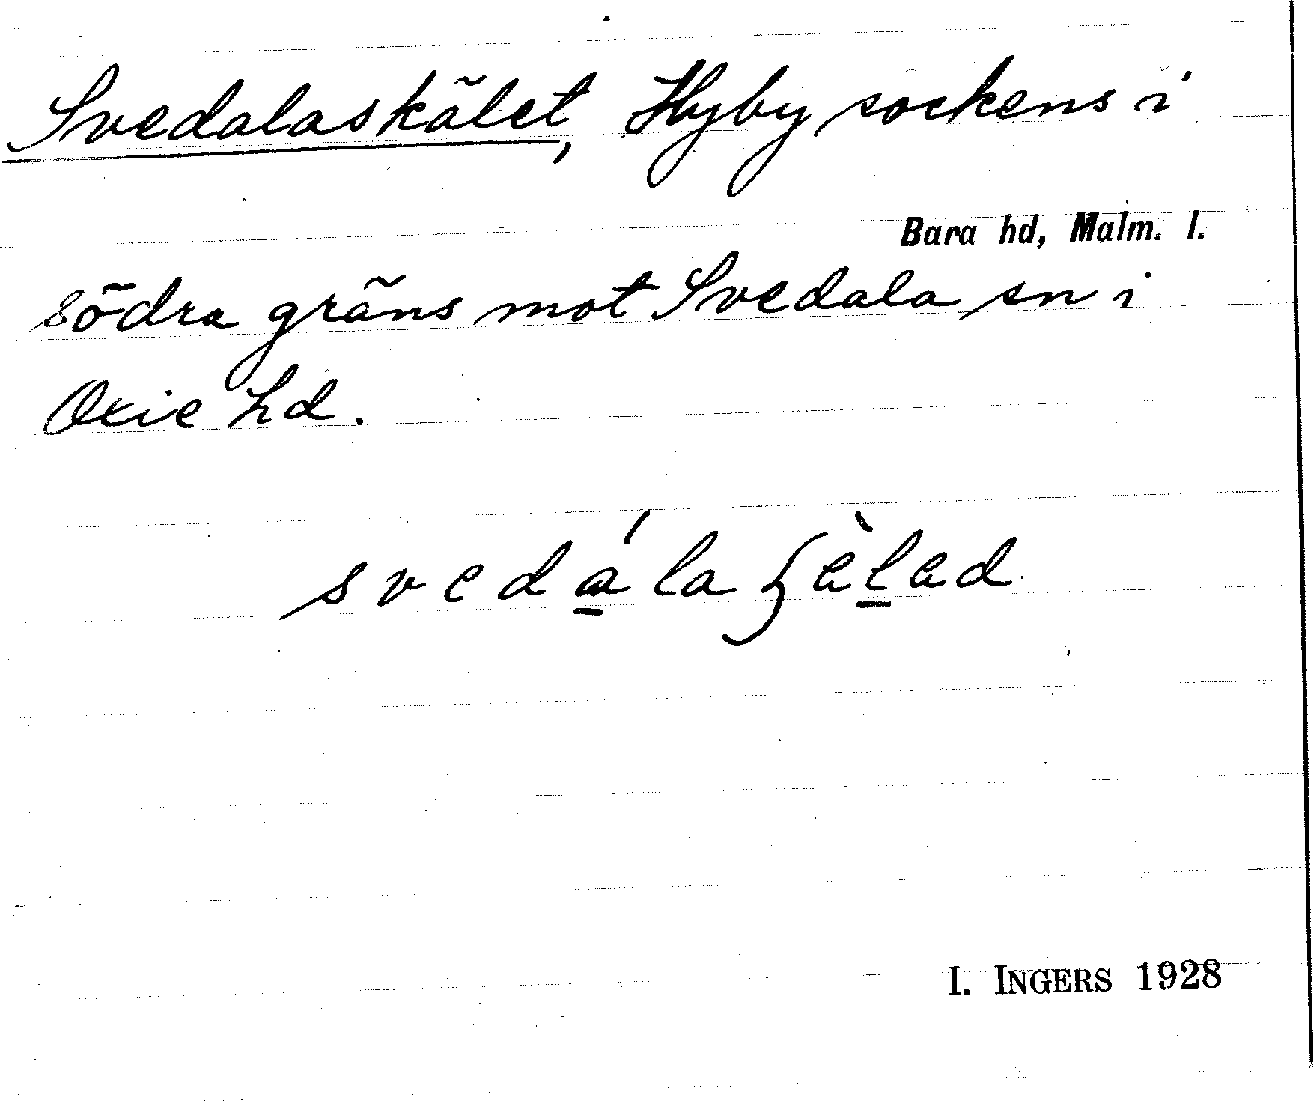 Svedalaskälet, Hyby sockens i
Bara hd, Malm. l.
södra gräns mot Svedala sn i
Oxie hd.
svedála
I. INGERS 1928